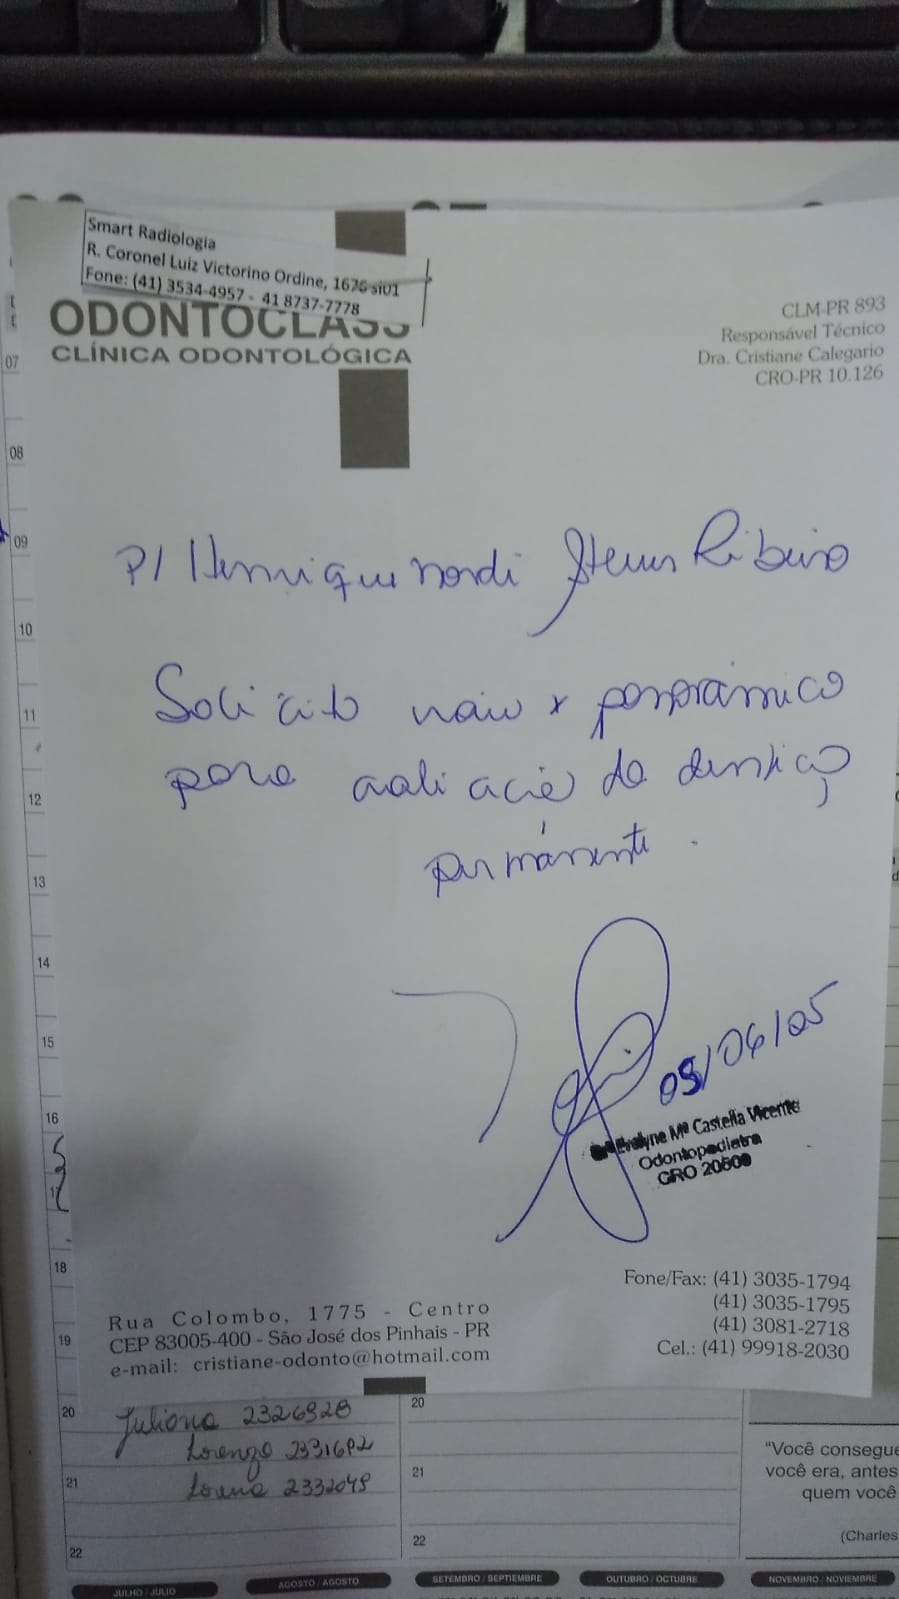 Smart Radiologia
R. Coronel Luiz Victorino Ordine, 1676 sl01
Fone: (41) 3534-4957 - 41 8737-7778
ODONTOCLASS
CLÍNICA ODONTOLÓGICA
CLM-PR 893
Responsável Técnico
Dra. Cristiane Calegario
CRO-PR 10.126
P/ Henrique Nardi Ribeiro
Solicito raio x panorâmico
para avaliação da dentição
permanente.
05/06/25
Evelyne Mª Castella Vicente
Odontopediatra
CRO 20500
Rua Colombo, 1775 - Centro
CEP 83005-400 - São José dos Pinhais - PR
e-mail: cristiane-odonto@hotmail.com
Fone/Fax: (41) 3035-1794
(41) 3035-1795
(41) 3081-2718
Cel.: (41) 99918-2030
07
08
09
10
11
12
13
14
15
16
18
19
20
21
22
Juliana 2326928
Lorenzo 2331692
Lorena 2332049
20
21
22
"Você consegue
você era, antes
quem você
(Charles
JULHO / JULIO
AGOSTO / AGOSTO
SETEMBRO / SEPTIEMBRE
OUTUBRO / OCTUBRE
NOVEMBRO / NOVIEMBRE